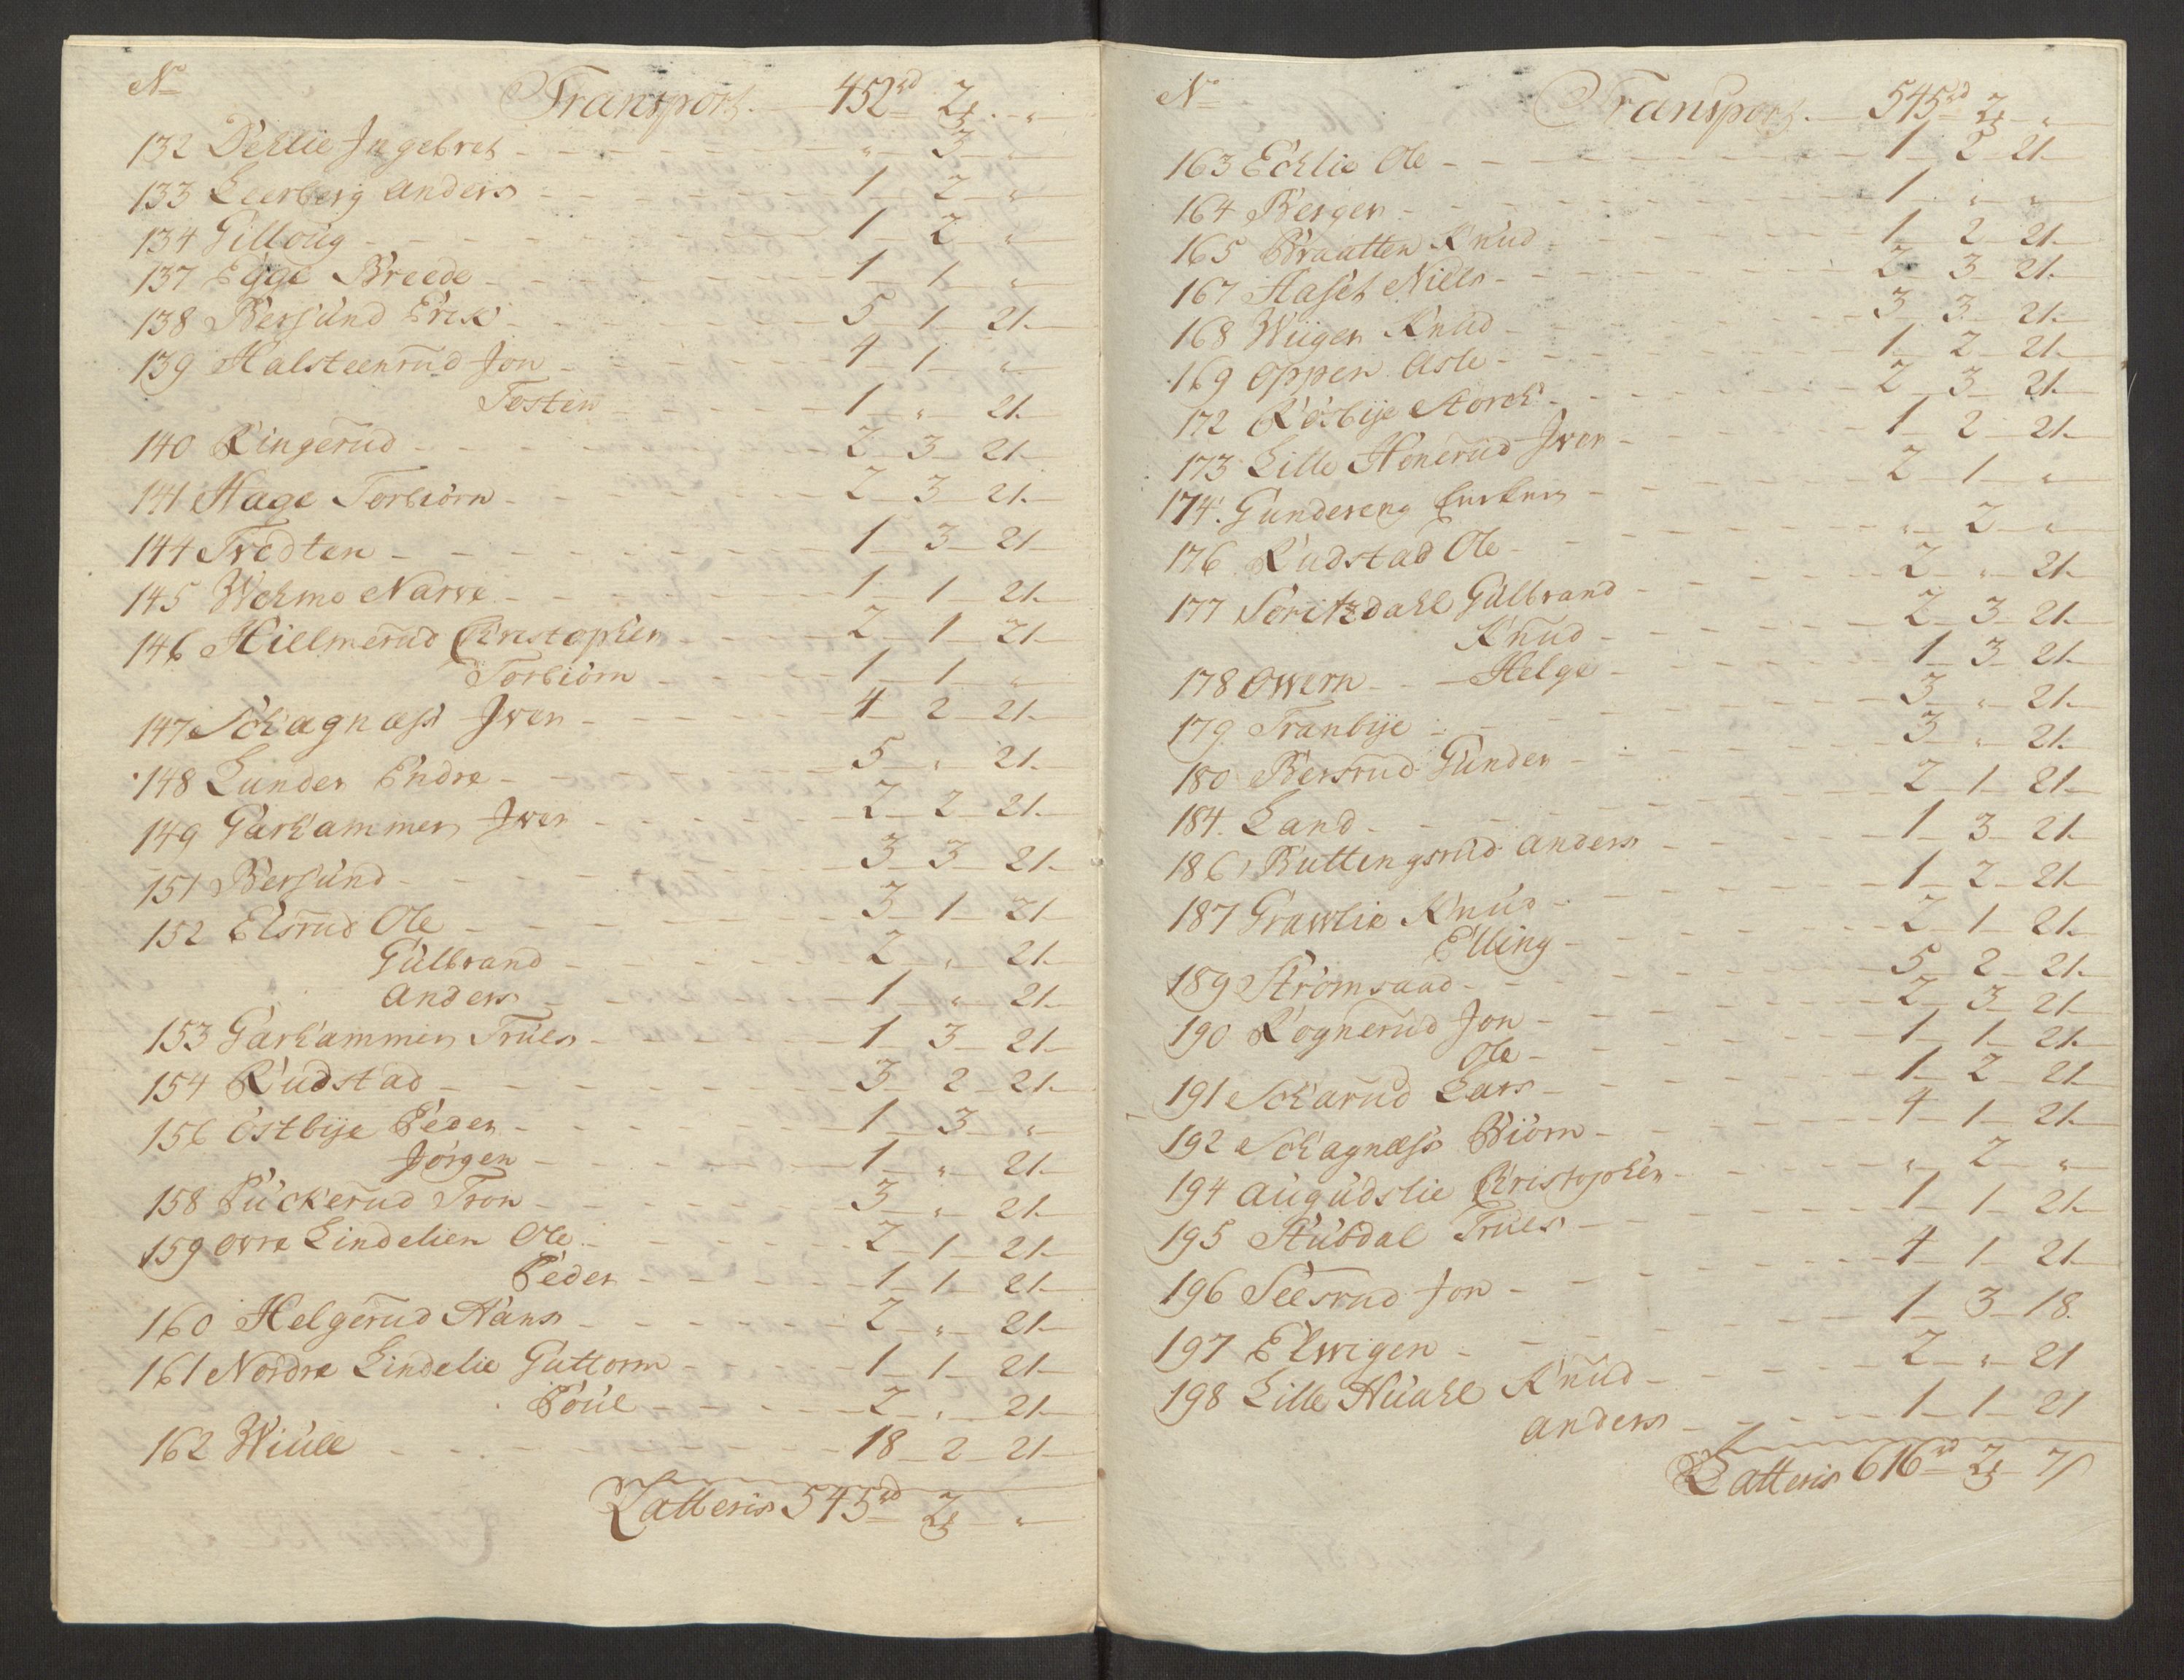 No
Transport. 452rd 2 "
132 Dehlie Ingebret " 3 "
133 Leerberg Anders 1 2 "
134 Gilloug 1 2 "
137 Egge Breede 1 1 "
138 Bersund Erik 5 1 21
139 Halsteenrud Jon 4 1 "
Tosten 1 " 21
140 Ringerud 2 3 21
141 Hage Torbiörn 2 3 21
144 Tvedten 1 3 21
145 Wehmo Narve 1 1 21
146 Hiellmerud Christopher 2 1 21
Torbiörn 1 1 "
147 Schagnæss Iver 4 2 21
148 Lunder Endre 5 " 21
149 Garhammer Iver 2 2 21
151 Bersund 3 3 21
152 Elsrud Ole 3 1 21
Gulbrand 2 " 21
Anders 1 " 21
153 Garhammer Truls 1 3 21
154 Rudstad 3 2 21
156 Östbije Peder 1 3 "
Jörgen 1 " 21
158 Puckerud Tron 3 " 21
159 Övre Lindelien Ole 2 1 21
Peder 1 1 21
160 Helgerud Hans 2 " 21
161 Nordre Lindelie Guttorm 1 1 21
Poul 2 " 21
162 Wiull 18 2 21
Latteris 545rd 2 "
No
Transport. 545rd 2 "
163 Echlie Ole 1 2 21
164 Berger 1 " "
165 Braatten Knud 1 2 21
167 Haset Niels 2 3 21
168 Wiiger Knud 3 3 21
169 Oppen Asle 1 2 21
172 Rösbije Storch 2 3 21
173 Lille Hönerud Iver 1 2 21
174. Gundereng 2 1 "
176 Rudstad Ole " 2 "
177 Soritzdahl Gulbrand 2 " 21
Knud 2 3 21
178 Owern Helge 1 3 21
179 Tranbije 3 " 21
180 Bersrud Gunder 3 " 21
184. Land 2 1 21
186 Buttingsrud Anders 1 3 21
187 Grawlie Knud 1 2 21
Elling 2 1 21
189 Strömsaad 5 2 21
190 Rognerud Jon 2 3 21
Ole 1 1 21
191 Scharud Lars 1 2 21
192 Schagnæss Biörn 4 1 21
194 Augudslie Christopher " 2 "
195 Stubdal Truls 1 1 21
196 Seesrud Jon 4 1 21
197 Elwigen 1 3 18.
198 Lille Huahl Knud 2 " 21
Anders 1 1 21
Latteris 616rd 2 7